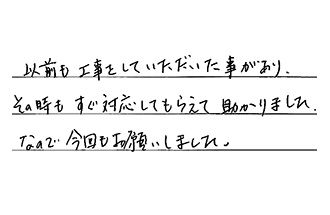 以前も工事をしていただいた事があり、
その時もすぐ対応してもらえて助かりました。
なので今回もお願いしました。